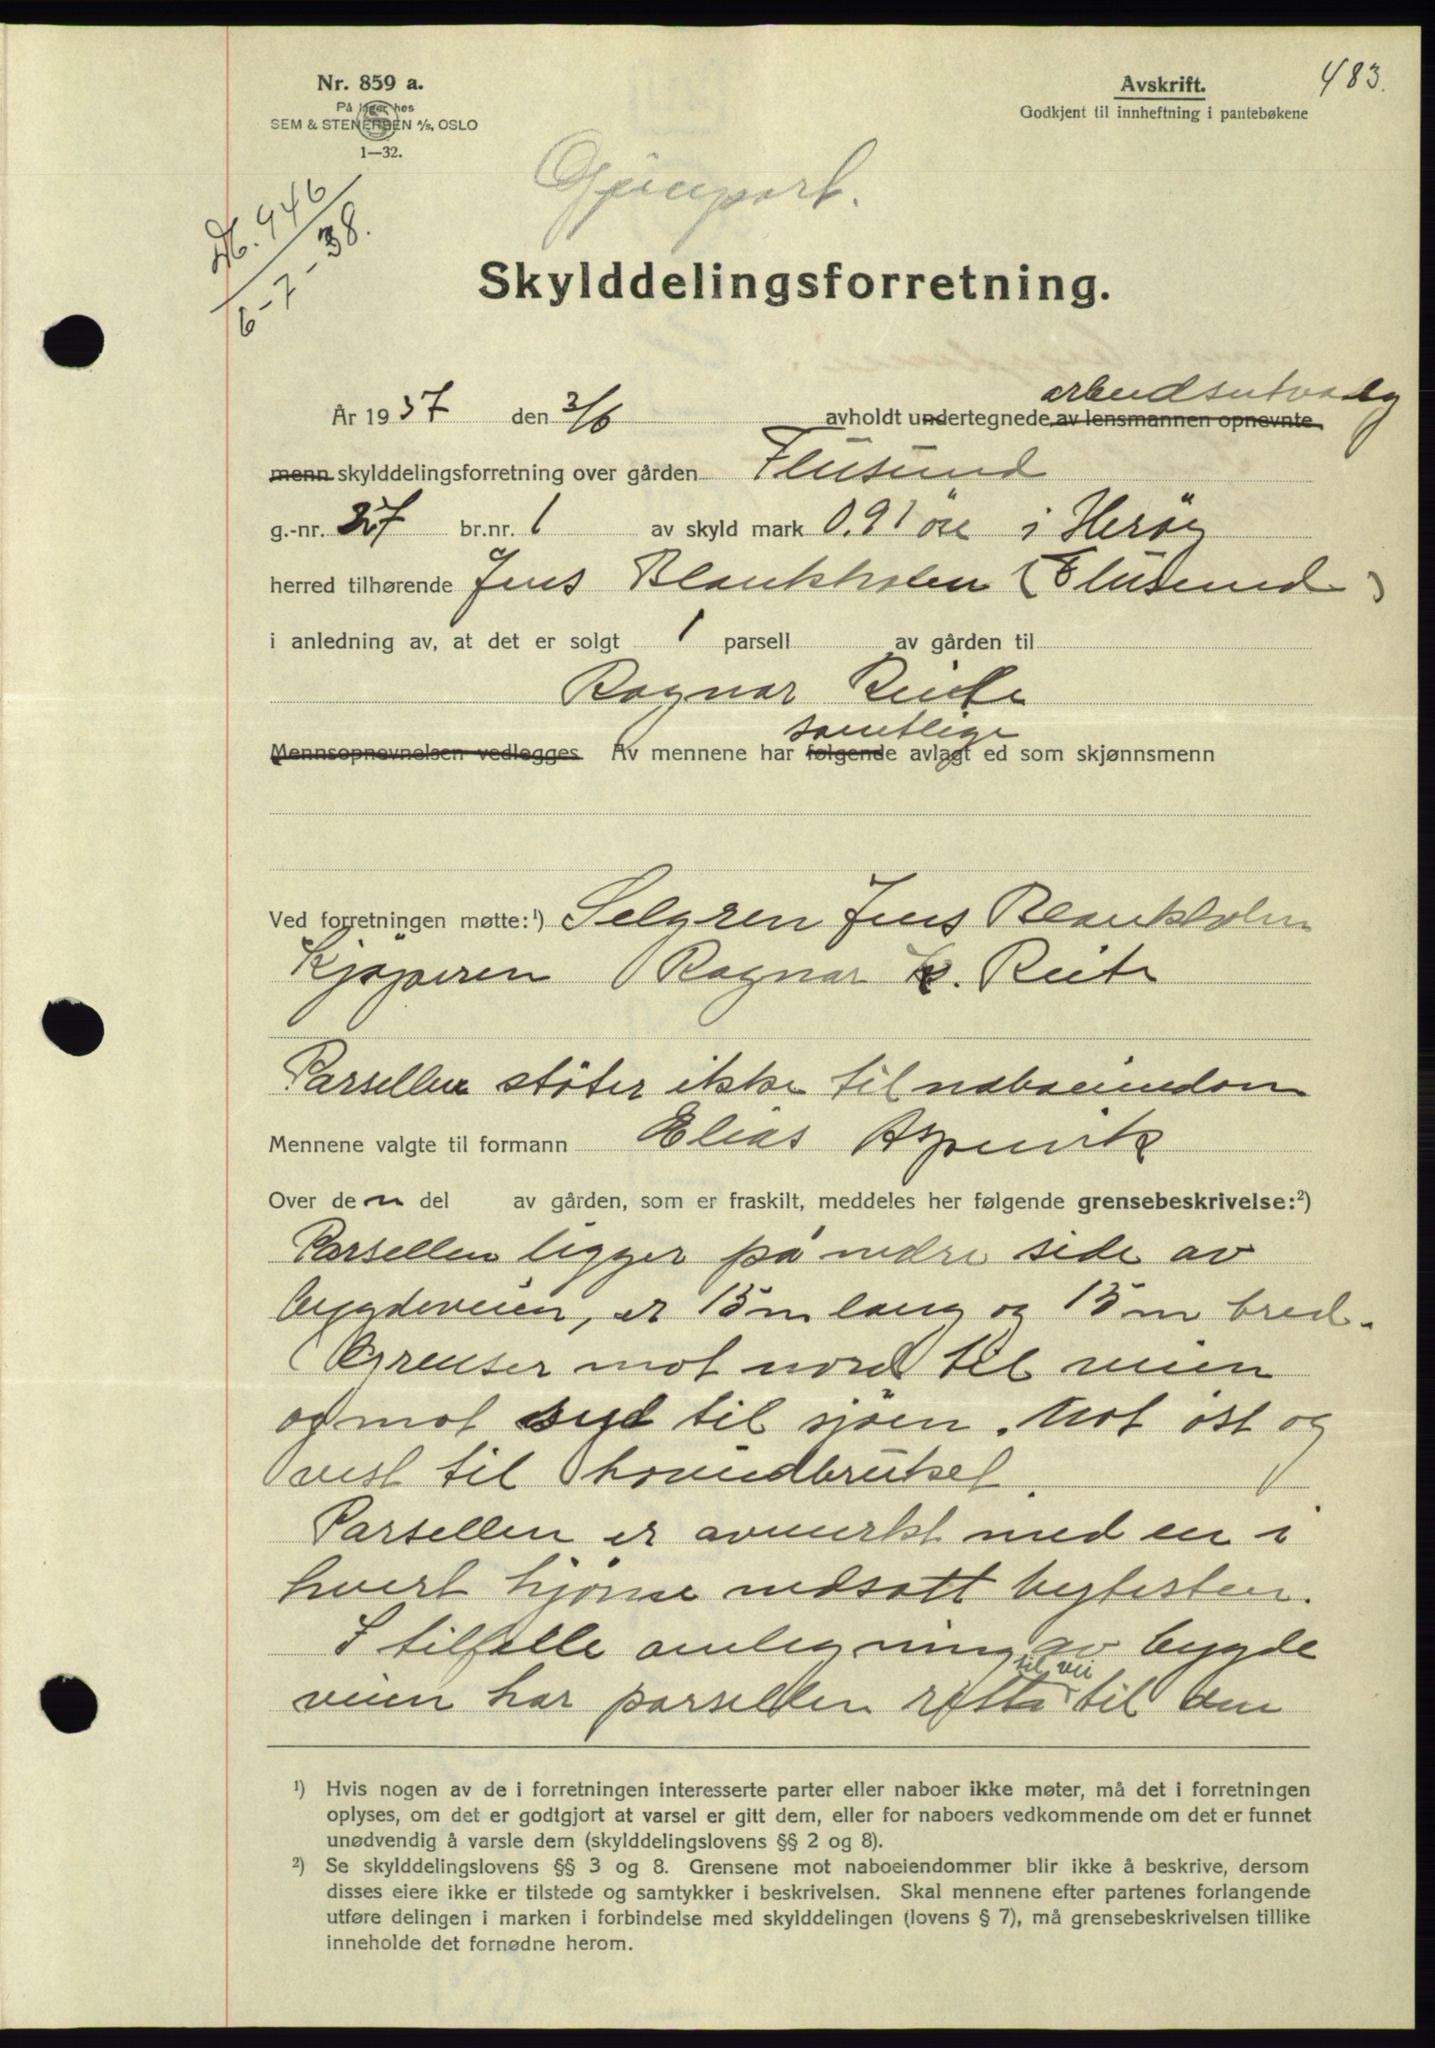 483.
Nr. 859 a.
På lager hos
SEM & STENERSEN A/S, OSLO
1—32.
Avskrift.
Godkjent til innheftning i pantebøkene
Gjenpart.
946
6-7-38.
Skylddelingsforretning.
arbeidsutvalg
År 1937 den 3/6 avholdt undertegnede av lensmannen opnevnte
menn skylddelingsforretning over gården Flusund
g.-nr. 37 br.nr. 1 av skyld mark 0.91 öre i Heröy
herred tilhørende Jens Blankholm (Flusund)
i anledning av, at det er solgt 1 parsell av gården til
Ragnar Reite
samtlige
Mennsopnevnelsen vedlegges Av mennene har følgende avlagt ed som skjønnsmenn
Ved forretningen møtte:¹) Selgren Jens Blankholm
Kjöperen Ragnar K. Reite
Parsellen stöter ikke til naboeiendom
Mennene valgte til formann Elias Aspevik
Over den del av gården, som er fraskilt, meddeles her følgende grensebeskrivelse:²)
Parsellen ligger på nedre side av
bygdeveien, er 15 m lang og 15 m bred.
Grenser mot nord til veien
og mot syd til sjöen. Mot öst og
vest til hovedbruket.
Parsellen er avmerkt med en i
hvert hjörne nedsatt bytesten.
I tilfelle omlegning av bygde
til vei
veien har parsellen rett til den
¹) Hvis nogen av de i forretningen interesserte parter eller naboer ikke møter, må det i forretningen
oplyses, om det er godtgjort at varsel er gitt dem, eller for naboers vedkommende om det er funnet
unødvendig å varsle dem (skylddelingslovens §§ 2 og 8).
²) Se skylddelingslovens §§ 3 og 8. Grensene mot naboeiendommer blir ikke å beskrive, dersom
disses eiere ikke er tilstede og samtykker i beskrivelsen. Skal mennene efter partenes forlangende
utføre delingen i marken i forbindelse med skylddelingen (lovens § 7), må grensebeskrivelsen tillike
inneholde det fornødne herom.